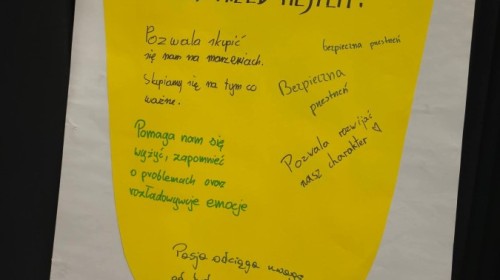 PRZED
Pozwala skupić
się nam na marzeniach.
Skupiamy się na tym co
ważne.
bezpieczna przestrzeń
Bezpieczna
przestrzeń
Pozwala rozwijać
nasz charakter
Pomaga nam się
wyżyć, zapomnieć
o problemach oraz
rozładowywuje emocje
Pasja odciąga
od